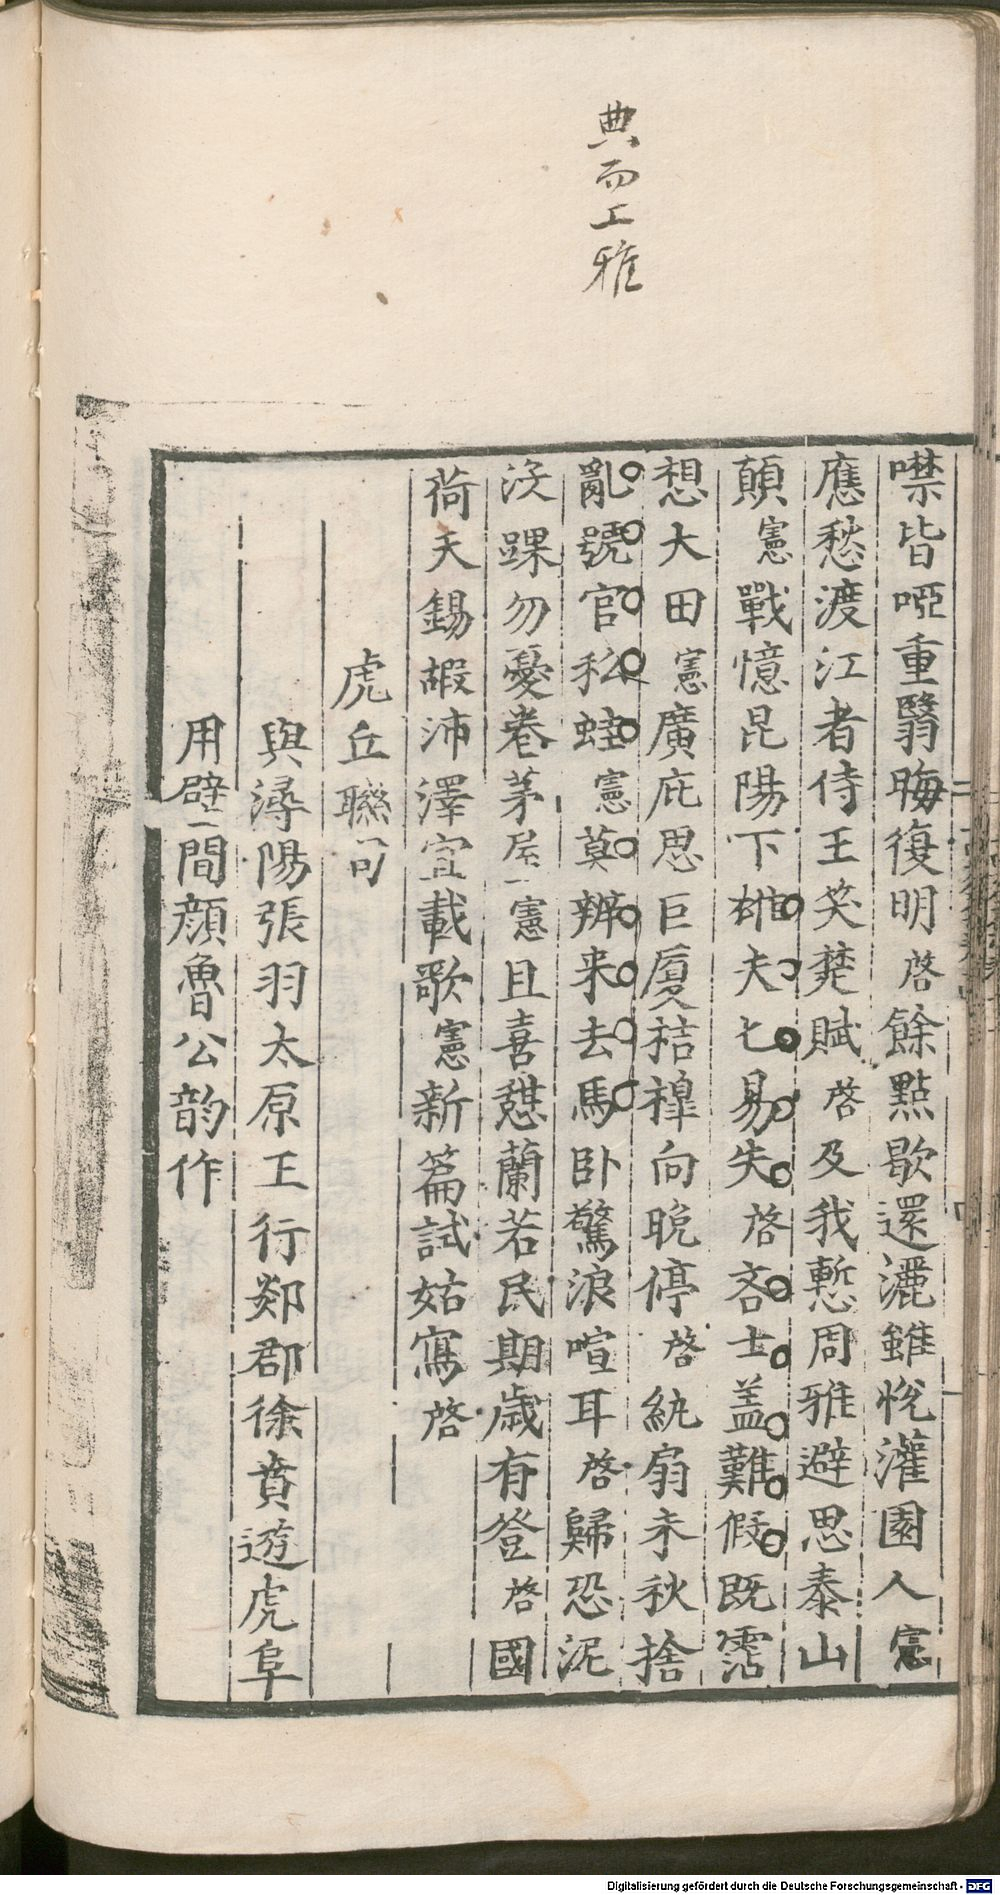 典而工雅
噤皆啞重翳晦復明啓餘點歇還灑雖悅灌園人憲
應愁渡江者侍王笑楚賦啓及我慙周雅避思泰山
顛憲戰憶昆陽下雄夫匕易失啓吝士蓋難假既霑
想大田憲廣庇思巨廈桔橰向晚停啓紈扇未秋捨
亂號官私蛙憲莫辨来去馬卧驚浪喧耳啓歸恐泥
没踝勿憂卷茅屋憲且喜憇蘭若民期歲有登啓國
荷天錫嘏沛澤宜載歌憲新篇試姑寫啓
虎丘聯句
與潯陽張羽太原王行郯郡徐賁遊虎阜
用壁間顔魯公韵作
Digitalisierung gefördert durch die Deutsche Forschungsgemeinschaft - DFG